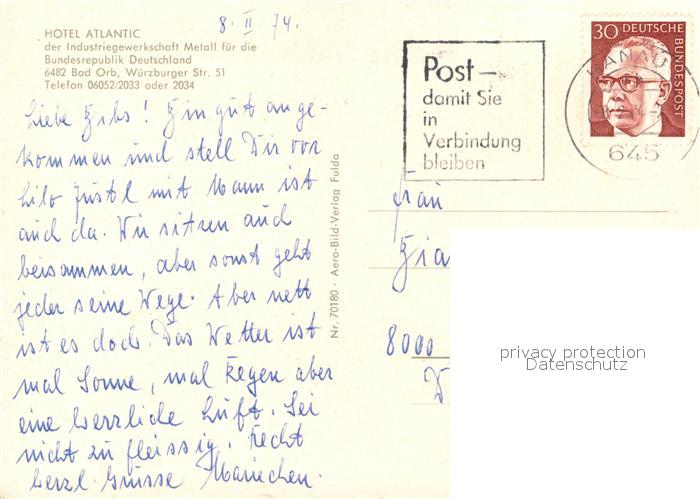 8. II. 74.
HOTEL ATLANTIC
der Industriegewerkschaft Metall für die
Bundesrepublik Deutschland
6482 Bad Orb, Würzburger Str. 51
Telefon 06052/2033 oder 2034
Liebe! Hin gut ange-
kommen und stell Dir vor
Lilo Justl mit Mann ist
auch da. Wir sitzen auch
beisammen, aber sonst geht
jeder seine Wege. Aber nett
ist es doch. Das Wetter ist
mal Sonne, mal Regen aber
eine herrliche Luft. Sei
nicht zu fleissig. Recht
herzl. Grüsse Mariechen.
Nr. 70180 · Aero-Bild-Verlag Fulda
Post –
damit Sie
in
Verbindung
bleiben
30 DEUTSCHE
BUNDESPOST
HANAU
645
Frau
8000
privacy protection
Datenschutz